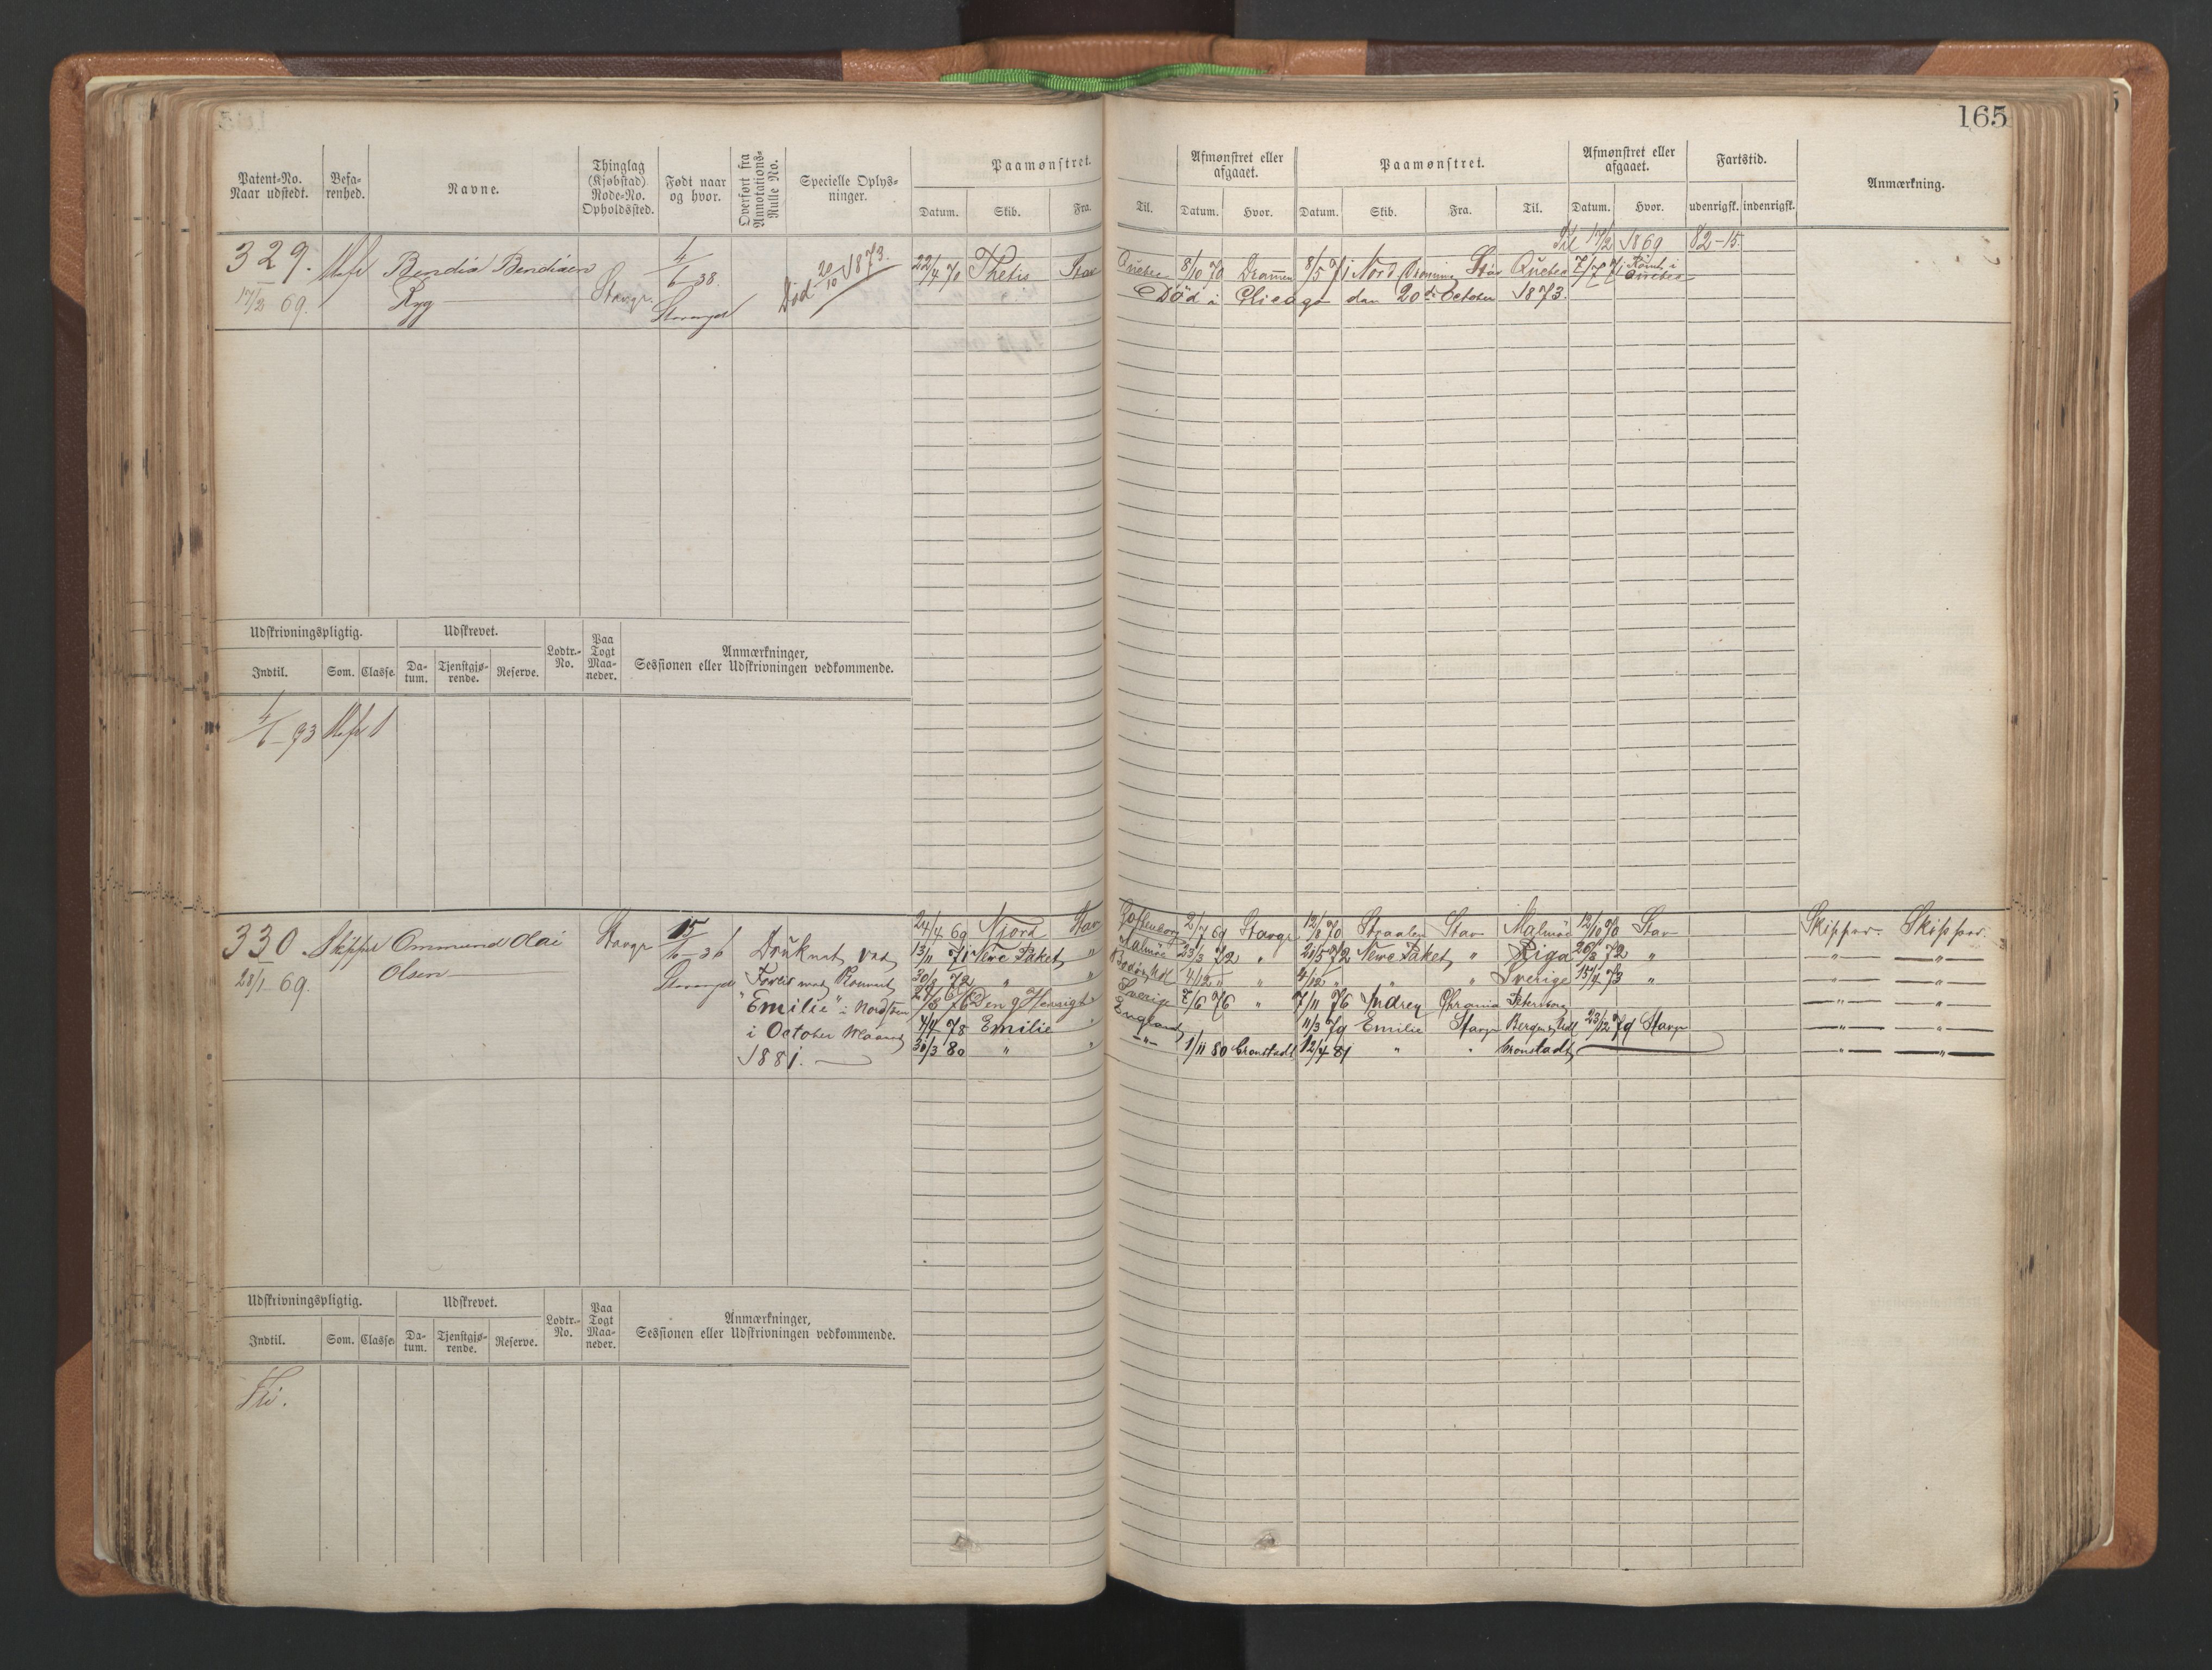 165
Patent-No. Naar udstedt. Befarenhed. Navne. Thinglag (Kjøbstad) Rode-No. Opholdssted. Født naar og hvor. Overført fra Annotations-Rulle No. Specielle Oplysninger. Paamønstret. Afmønstret eller afgaaet. Paamønstret. Afmønstret eller afgaaet. Fartstid. Anmærkning.
Datum. Skib. Fra. Til. Datum. Hvor. Datum. Skib. Fra. Til. Datum. Hvor. udenrigsk. indenrigsk.
Til 17/2 1869 82-15.
329. Bendix Bendixen 4/6-38. Død 20/10 1873. 22/4 70 Thetis Stav Quebec 8/10 70 Drammen 8/5 71 Nord Stav Quebec 7/7 71 Rømt i Quebec
17/2 69. Ryg Stavgr. Stavanger Død i Chicago den 20de October 1873.
Udskrivningspligtig. Udskrevet. Lodtr.-No. Paa Togt Maaneder. Anmærkninger, Sessionen eller Udskrivningen vedkommende.
Indtil. Som. Classe Datum. Tjenstgjørende. Reserve.
4/6-93 1
330. Skipper Ommund Olai Stavgr 15/6-36 24/4 69 Njord Stav Gothenborg 2/7 69 Stavgr 12/8 70 Straalen Stav Malmö 12/10 70 Stav Skipper. Skipper.
28/1 69. Olsen Stavanger Druknet ved 13/11 71 Newe Paket " Malmö 23/3 72 " 21/5 72 Newe Paket " Riga 26/8 72 " —"— —"—
Forlis med 30/8 72 " " 4/12 " " 4/12 " " " Sverige 15/7 73 " —"— —"—
"Emilie" i Nordsøen 76 Den g Hensigt " Sverige 7/6 76 " 7/11 76 Andrey Chrania Petersborg —"— —"—
i October Maaned 4/4 78 Emilie " England 11/3 79 Emilie Stavgr 23/12 79 Stavgr —"— —"—
1881. 30/3 80 " " —"— 1/11 80 Cronstadt 12/4 81 " " Cronstadt —"— —"—
Udskrivningspligtig. Udskrevet. Lodtr.-No. Paa Togt Maaneder. Anmærkninger, Sessionen eller Udskrivningen vedkommende.
Indtil. Som. Classe Datum. Tjenstgjørende. Reserve.
Fri.